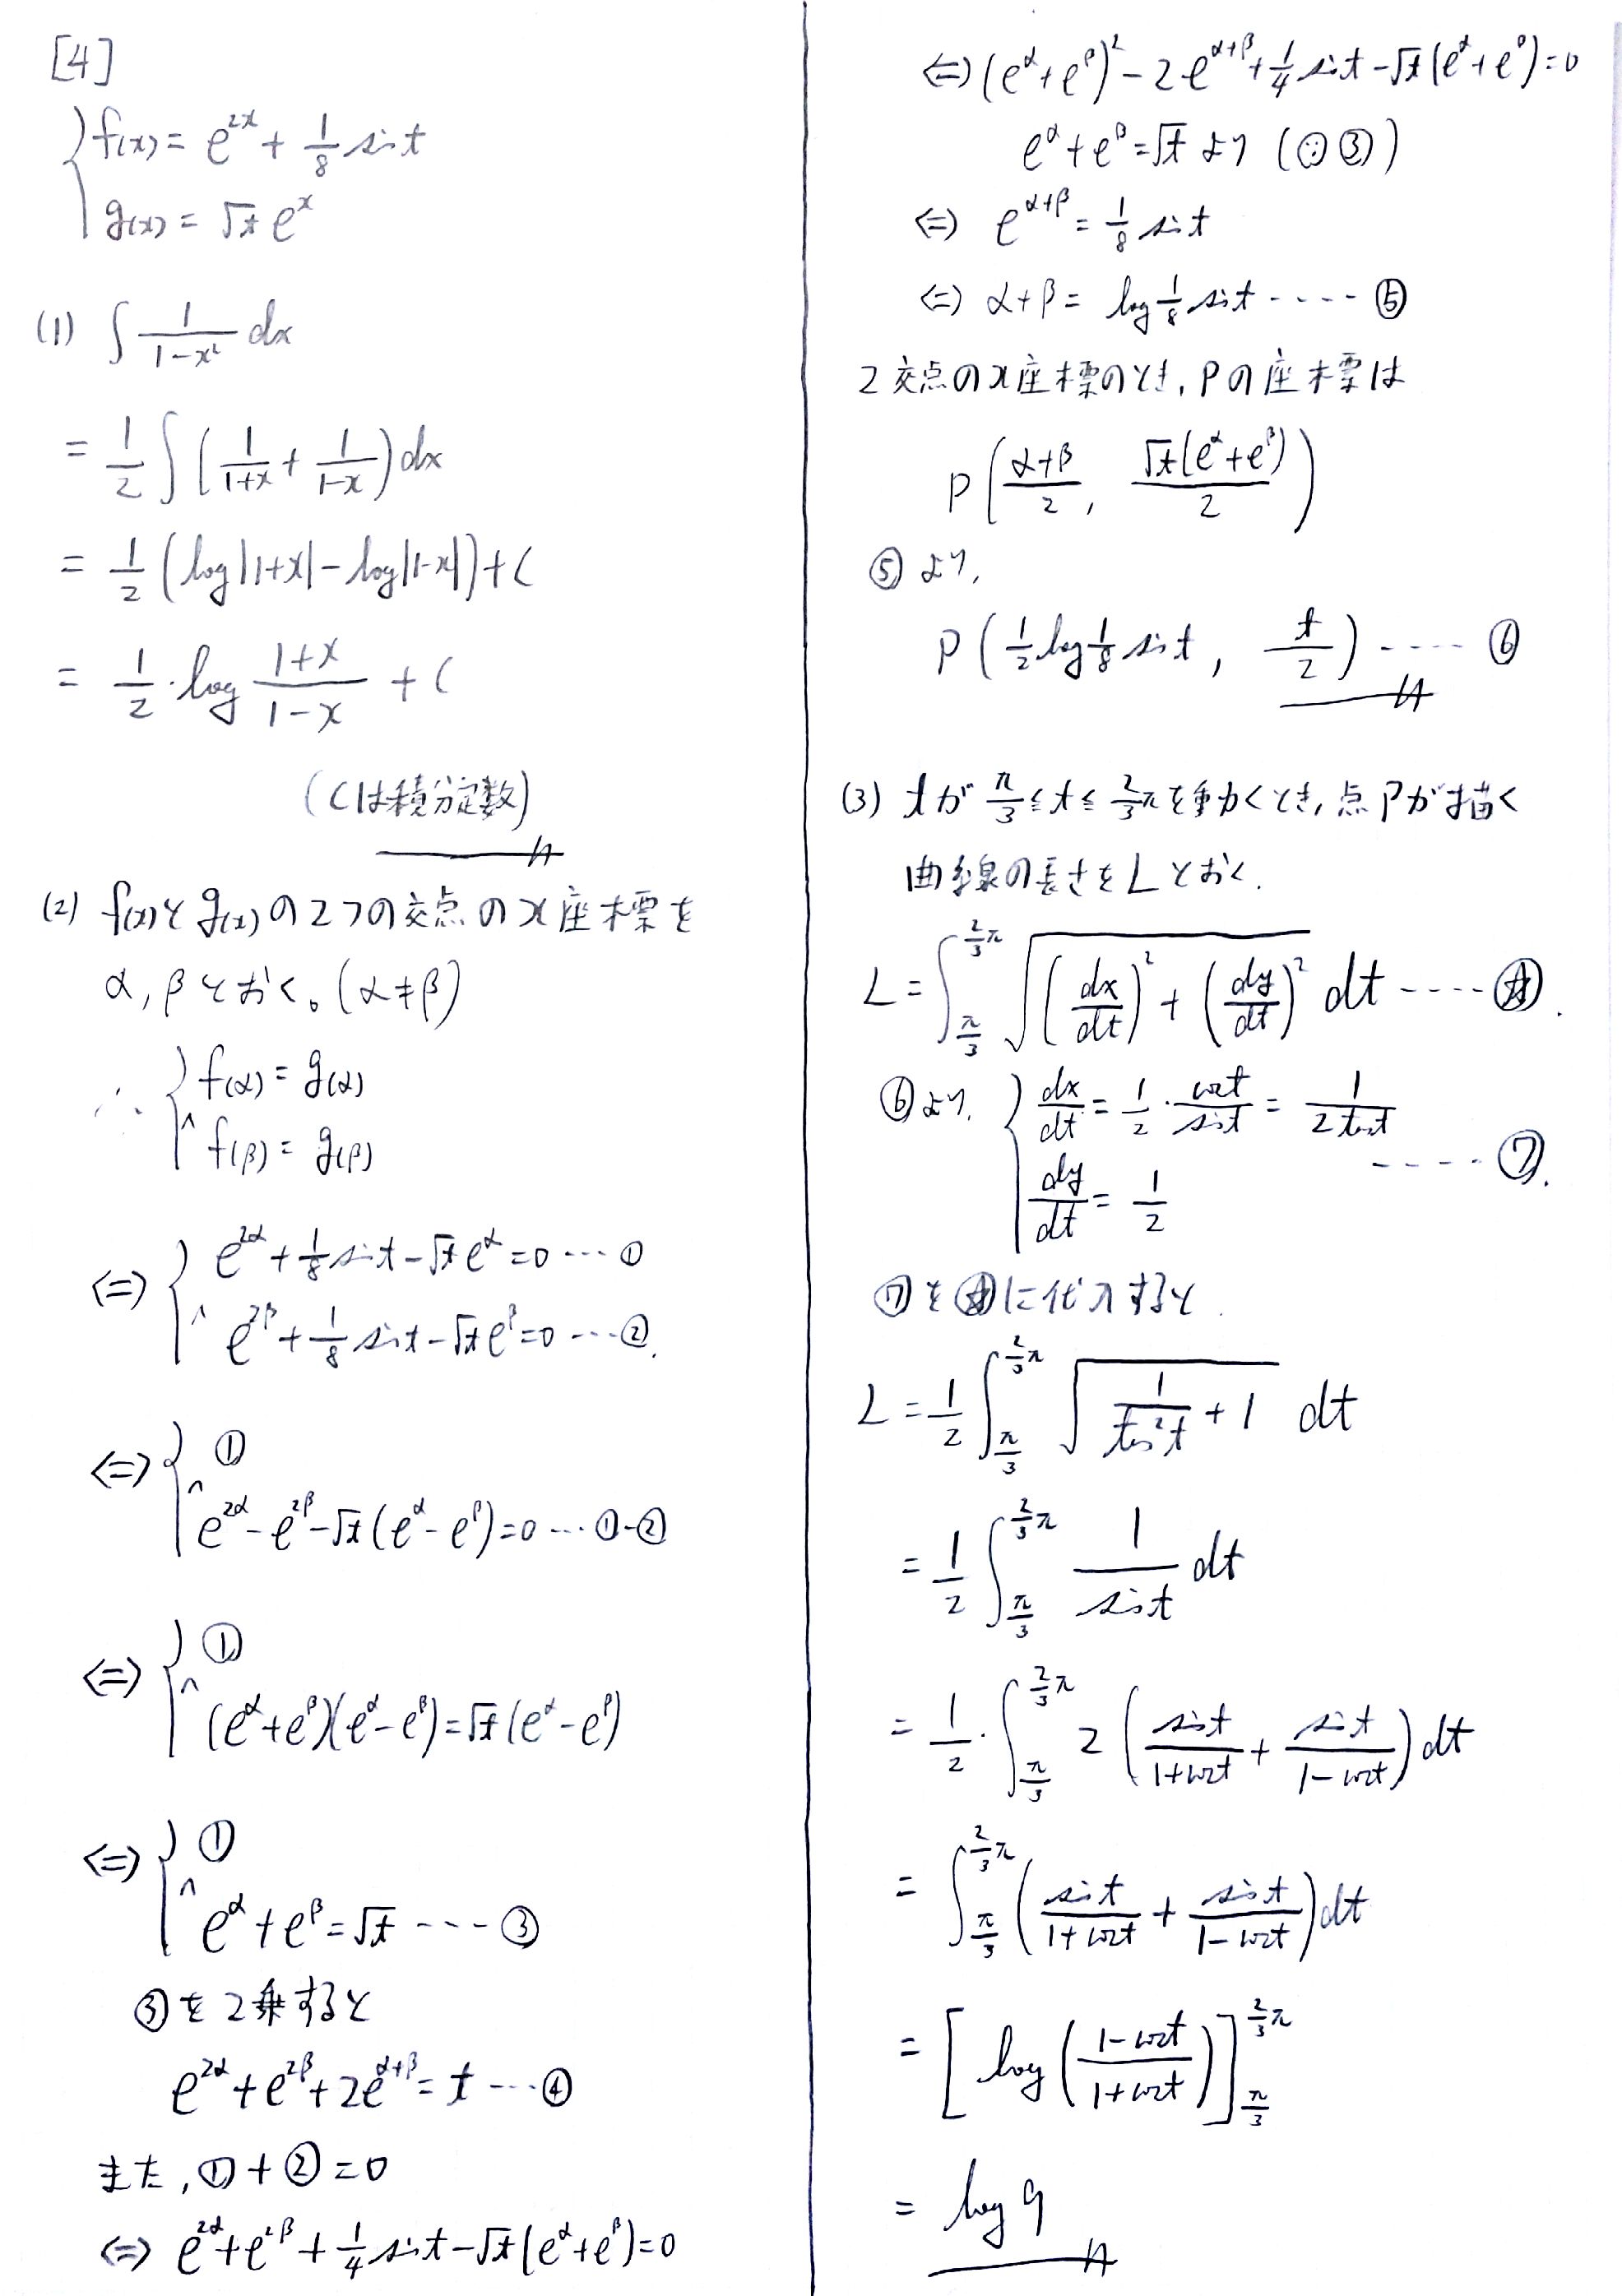 [4]
{ f(x) = e^{2x} + 1/8 sin t
g(x) = √t e^x
(1) ∫ 1/(1-x²) dx
= 1/2 ∫ (1/(1+x) + 1/(1-x)) dx
= 1/2 (log|1+x| - log|1-x|) + C
= 1/2 · log (1+x)/(1-x) + C
(Cは積分定数)
(2) f(x)とg(x)の2つの交点のx座標を
α, βとおく。(α≠β)
∴ { f(α) = g(α)
∧ f(β) = g(β)
⇔ { e^{2α} + 1/8 sin t - √t e^α = 0 ... ①
∧ e^{2β} + 1/8 sin t - √t e^β = 0 ... ②.
⇔ { ①
∧ e^{2α} - e^{2β} - √t (e^α - e^β) = 0 ... ①-②
⇔ { ①
∧ (e^α + e^β)(e^α - e^β) = √t (e^α - e^β)
⇔ { ①
∧ e^α + e^β = √t ---- ③
③を2乗すると
e^{2α} + e^{2β} + 2e^{α+β} = t ... ④
また, ① + ② = 0
⇔ e^{2α} + e^{2β} + 1/4 sin t - √t (e^α + e^β) = 0
⇔ (e^α + e^β)² - 2e^{α+β} + 1/4 sin t - √t (e^α + e^β) = 0
e^α + e^β = √t より (∵③)
⇔ e^{α+β} = 1/8 sin t
⇔ α+β = log 1/8 sin t ---- ⑤
2交点のx座標のとき, Pの座標は
P( (α+β)/2, √t(e^α + e^β)/2 )
⑤より,
P( 1/2 log 1/8 sin t, t/2 ) ---- ⑥
(3) tが π/3 ≦ t ≦ 2/3π を動くとき, 点Pが描く
曲線の長さをLとおく.
L = ∫_{π/3}^{2/3π} √((dx/dt)² + (dy/dt)²) dt ---- ☆.
⑥より, { dx/dt = 1/2 · cos t/sin t = 1/(2 tan t)
dy/dt = 1/2 ---- ⑦.
⑦を☆に代入すると.
L = 1/2 ∫_{π/3}^{2/3π} √(1/tan²t + 1) dt
= 1/2 ∫_{π/3}^{2/3π} 1/sin t dt
= 1/2 · ∫_{π/3}^{2/3π} 2 (sin t/(1+cos t) + sin t/(1-cos t)) dt
= ∫_{π/3}^{2/3π} (sin t/(1+cos t) + sin t/(1-cos t)) dt
= [ log ((1-cos t)/(1+cos t)) ]_{π/3}^{2/3π}
= log 9